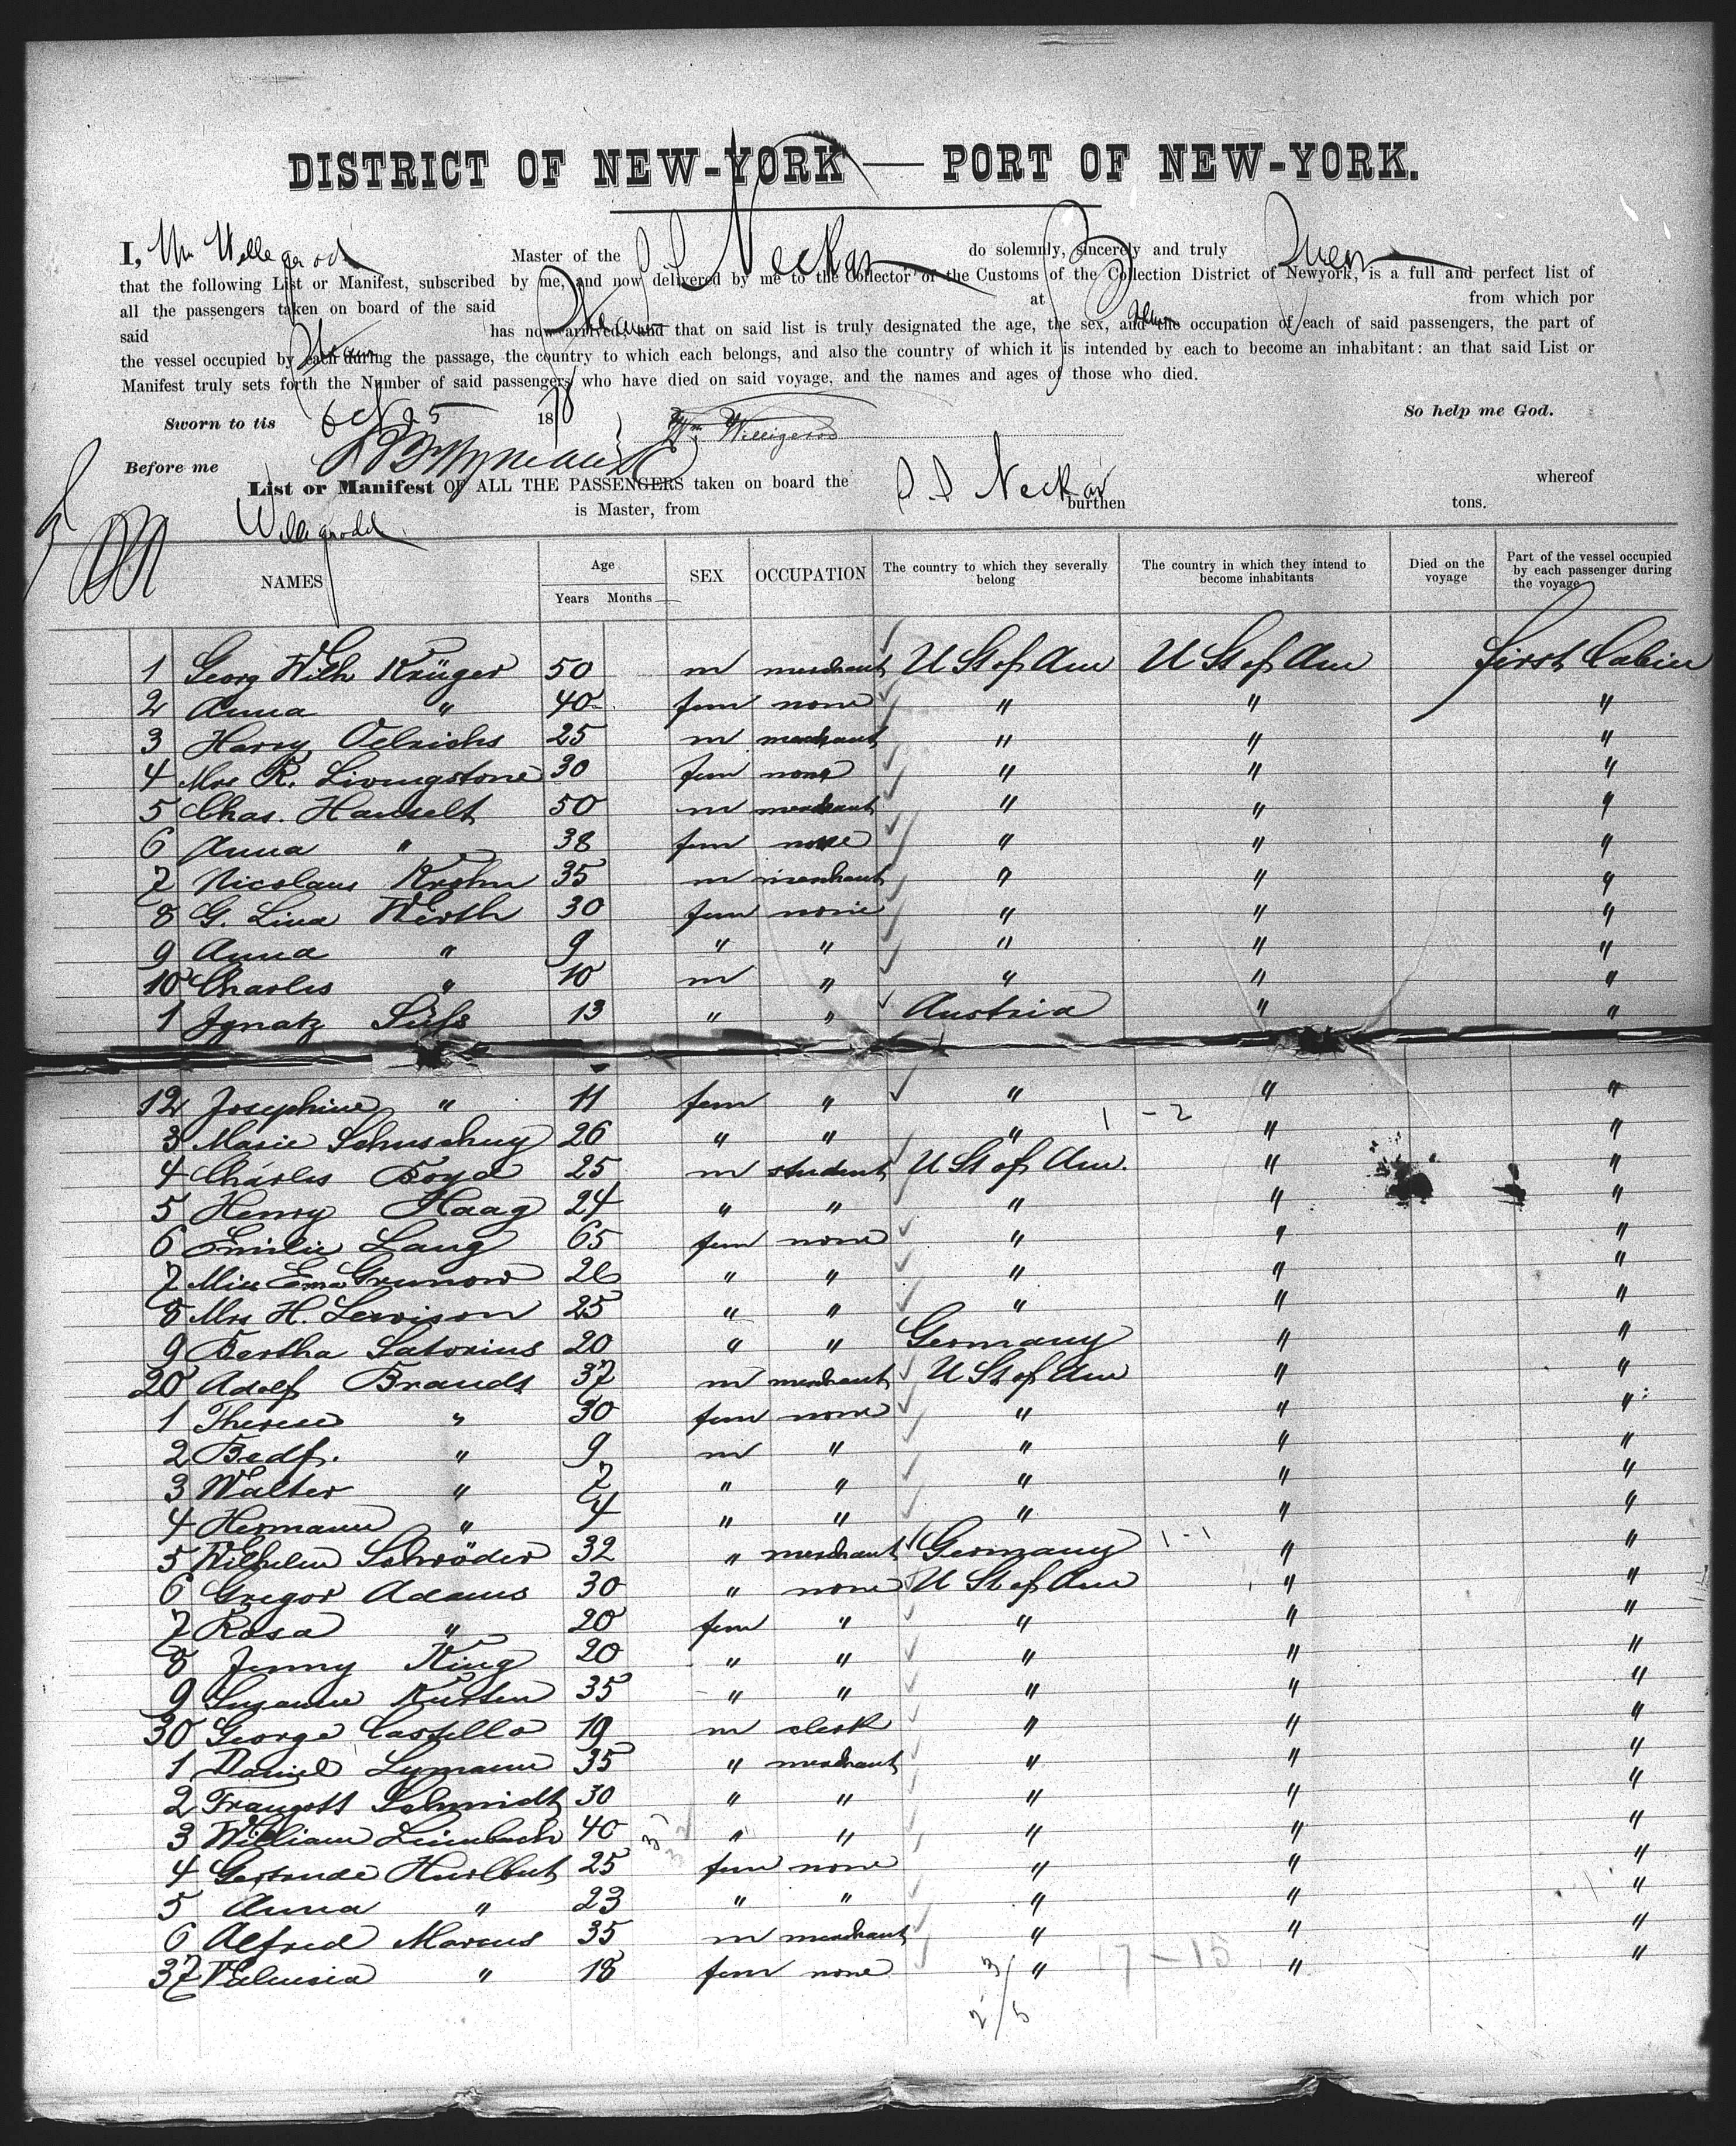 DISTRICT OF NEW-YORK — PORT OF NEW-YORK.
I, Wm Willegerod Master of the S S Neckar do solemnly, sincerely and truly Swear
that the following List or Manifest, subscribed by me, and now delivered by me to the Collector of the Customs of the Collection District of Newyork, is a full and perfect list of
all the passengers taken on board of the said Steamer at Bremen from which por
said Steamer has now arrived; and that on said list is truly designated the age, the sex, and the occupation of each of said passengers, the part of
the vessel occupied by each during the passage, the country to which each belongs, and also the country of which it is intended by each to become an inhabitant: an that said List or
Manifest truly sets forth the Number of said passengers who have died on said voyage, and the names and ages of those who died.
Sworn to tis Oct 25 1878 Wm. Willigerod So help me God.
Before me
List or Manifest OF ALL THE PASSENGERS taken on board the S. S Neckar whereof
Willegerodd is Master, from burthen tons.
NAMES Age Years Months SEX OCCUPATION The country to which they severally belong The country in which they intend to become inhabitants Died on the voyage Part of the vessel occupied by each passenger during the voyage
1 Georg Wilh Krüger 50 m merchant U St of Am U St of Am first Cabin
2 Anna " 40 fem none " " "
3 Harry Oelrichs 25 m merchant " " "
4 Mrs R. Livingstone 30 fem none " " "
5 Chas. Hauselt 50 m merchant " " "
6 Anna " 38 fem none " " "
7 Nicolaus Krohn 35 m merchant " " "
8 G. Lina Wirth 30 fem none " " "
9 Anna " 9 " " " " "
10 Charles " 10 m " " " "
1 Ignatz Süss 13 " " Austria " "
12 Josephine " 11 fem " " " "
3 Marie Schuschny 26 " " " 1 - 2 " "
4 Charles Boyd 25 m student U St of Am. " "
5 Henry Haag 24 " " " " "
6 Emilie Lang 65 fem none " " "
7 Miss Ema Grunow 26 " " " " "
8 Mrs H. Lewison 25 " " " " "
9 Bertha Satorius 20 " " Germany " "
20 Adolf Brands 37 m merchant U St of Am " "
1 Therese " 30 fem none " " "
2 " 9 m " " " "
3 Walter " 7 " " " " "
4 Hermann " 4 " " " " "
5 Wilhelm Schröder 32 " merchant Germany 1 - 1 " "
6 Gregor Adams 30 " none U St of Am " "
7 Rosa " 20 fem " " " "
8 Jenny King 20 " " " " "
9 Susanne Kursten 35 " " " " "
30 George Castello 19 m clerk " " "
1 Daniel Lymann 35 " merchant " " "
2 Traugott Schmidt 30 " " " " "
3 William Limbach 40 " " " " "
4 Gertrude Hurlbut 25 fem none " " "
5 Anna " 23 " " " " "
6 Alfred Marcus 35 m merchant " " "
37 " 18 fem none " 17 - 15 " "
3/
2/5